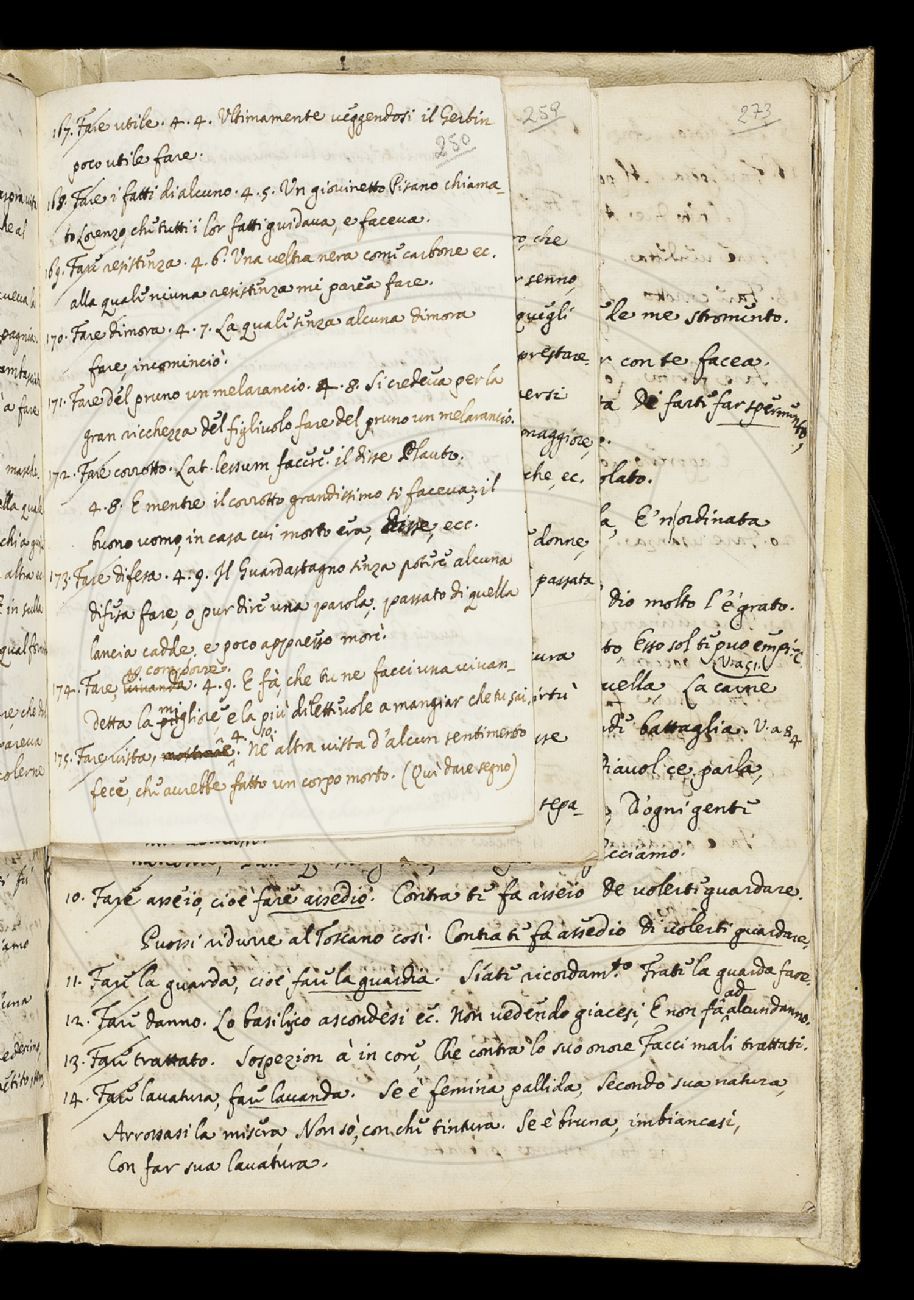 250
167. Fare utile. 4. 4. Ultimamente veggendosi il Gerbin
poco utile fare.
168. Fare i fatti di alcuno. 4. 5. Un giovinetto Pisano chiama_
to Lorenzo, che tutti i lor fatti guidava, e faceva.
169. Fare resistenza. 4. 6. Una veltra nera come carbone ec.
alla quale niuna resistenza mi parea fare.
170. Fare dimora. 4. 7. La quale senza alcuna dimora
fare, incominciò.
171. Fare del pruno un melarancio. 4. 8. Si credeva per la
gran ricchezza del figlivolo fare del pruno un melarancio.
172. Fare corrotto. Lat. lessum facere. il disse Plauto.
4. 8. E mentre il corrotto grandissimo si faceva, il
buono uomo, in casa cui morto era, disse, ecc.
173. Fare difesa. 4. 9. Il Guardastagno senza potere alcuna
difesa fare, o pur dire una parola, passato di quella
lancia cadde, e poco appresso morì.
p. comporre.
174. Fare, vivanda. 4. 9. E fà, che tu ne facci una vivan_
detta la migliore e la più dilettevole a mangiar che tu sai.
4. 10.
175. Fare vista, mostrare. Nè altra vista d'alcun sentimento
fece, che avrebbe fatto un corpo morto. (Qui dare segno)
259
o, che
r senno,
quegli
prestare.
versi
maggiore,
che, ec.
donne,
passata
ura
irtù
sse
sepa_
273
le me stromento.
r con te facea.
tà de farti far spermento,
olato.
la, E n'ordinata
dio molto l'è grato.
to Esso sol ti può empir
V. a 51.
uella, La carne
di battaglia. V. a 84
Diavol ce parla,
o, D'ogni gente
cciamo.
10. Fare asseio, cioè fare assedio. Contra te fa asseio De volerti guardare.
Puossi ridurre al Toscano così. Contra te fa assedio di volerti guardare,
11. Fare la guarda, cioè fare la guardia. Siate ricordam.to Frate la guarda fare.
12. Fare danno. Lo basilico ascondesi ec. Non vedendo giacesi, E non fà ad alcun danno.
13. Fare trattato. Sospezion à in core, Che contra lo suo onore Facci mali trattati.
14. Fare lavatura, fare lavanda. Se è femina pallida, Secondo sua natura,
Arrossasi la misera, Non sò, con che tintura. Se è bruna, imbiancasi,
Con far sua lavatura.